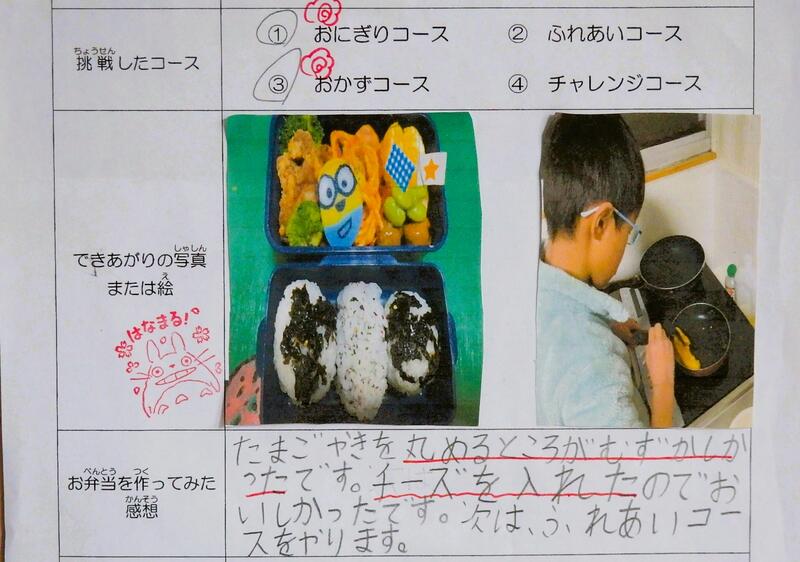 挑戦したコース
ちょうせん
① おにぎりコース ② ふれあいコース
③ おかずコース ④ チャレンジコース
できあがりの写真
しゃしん
または絵
え
はなまる!
お弁当を作ってみた
べんとう つく
感想
かんそう
たまごやきを丸めるところがむずかしか
ったです。チーズを入れたのでお
いしかったです。次は、ふれあいコー
スをやります。